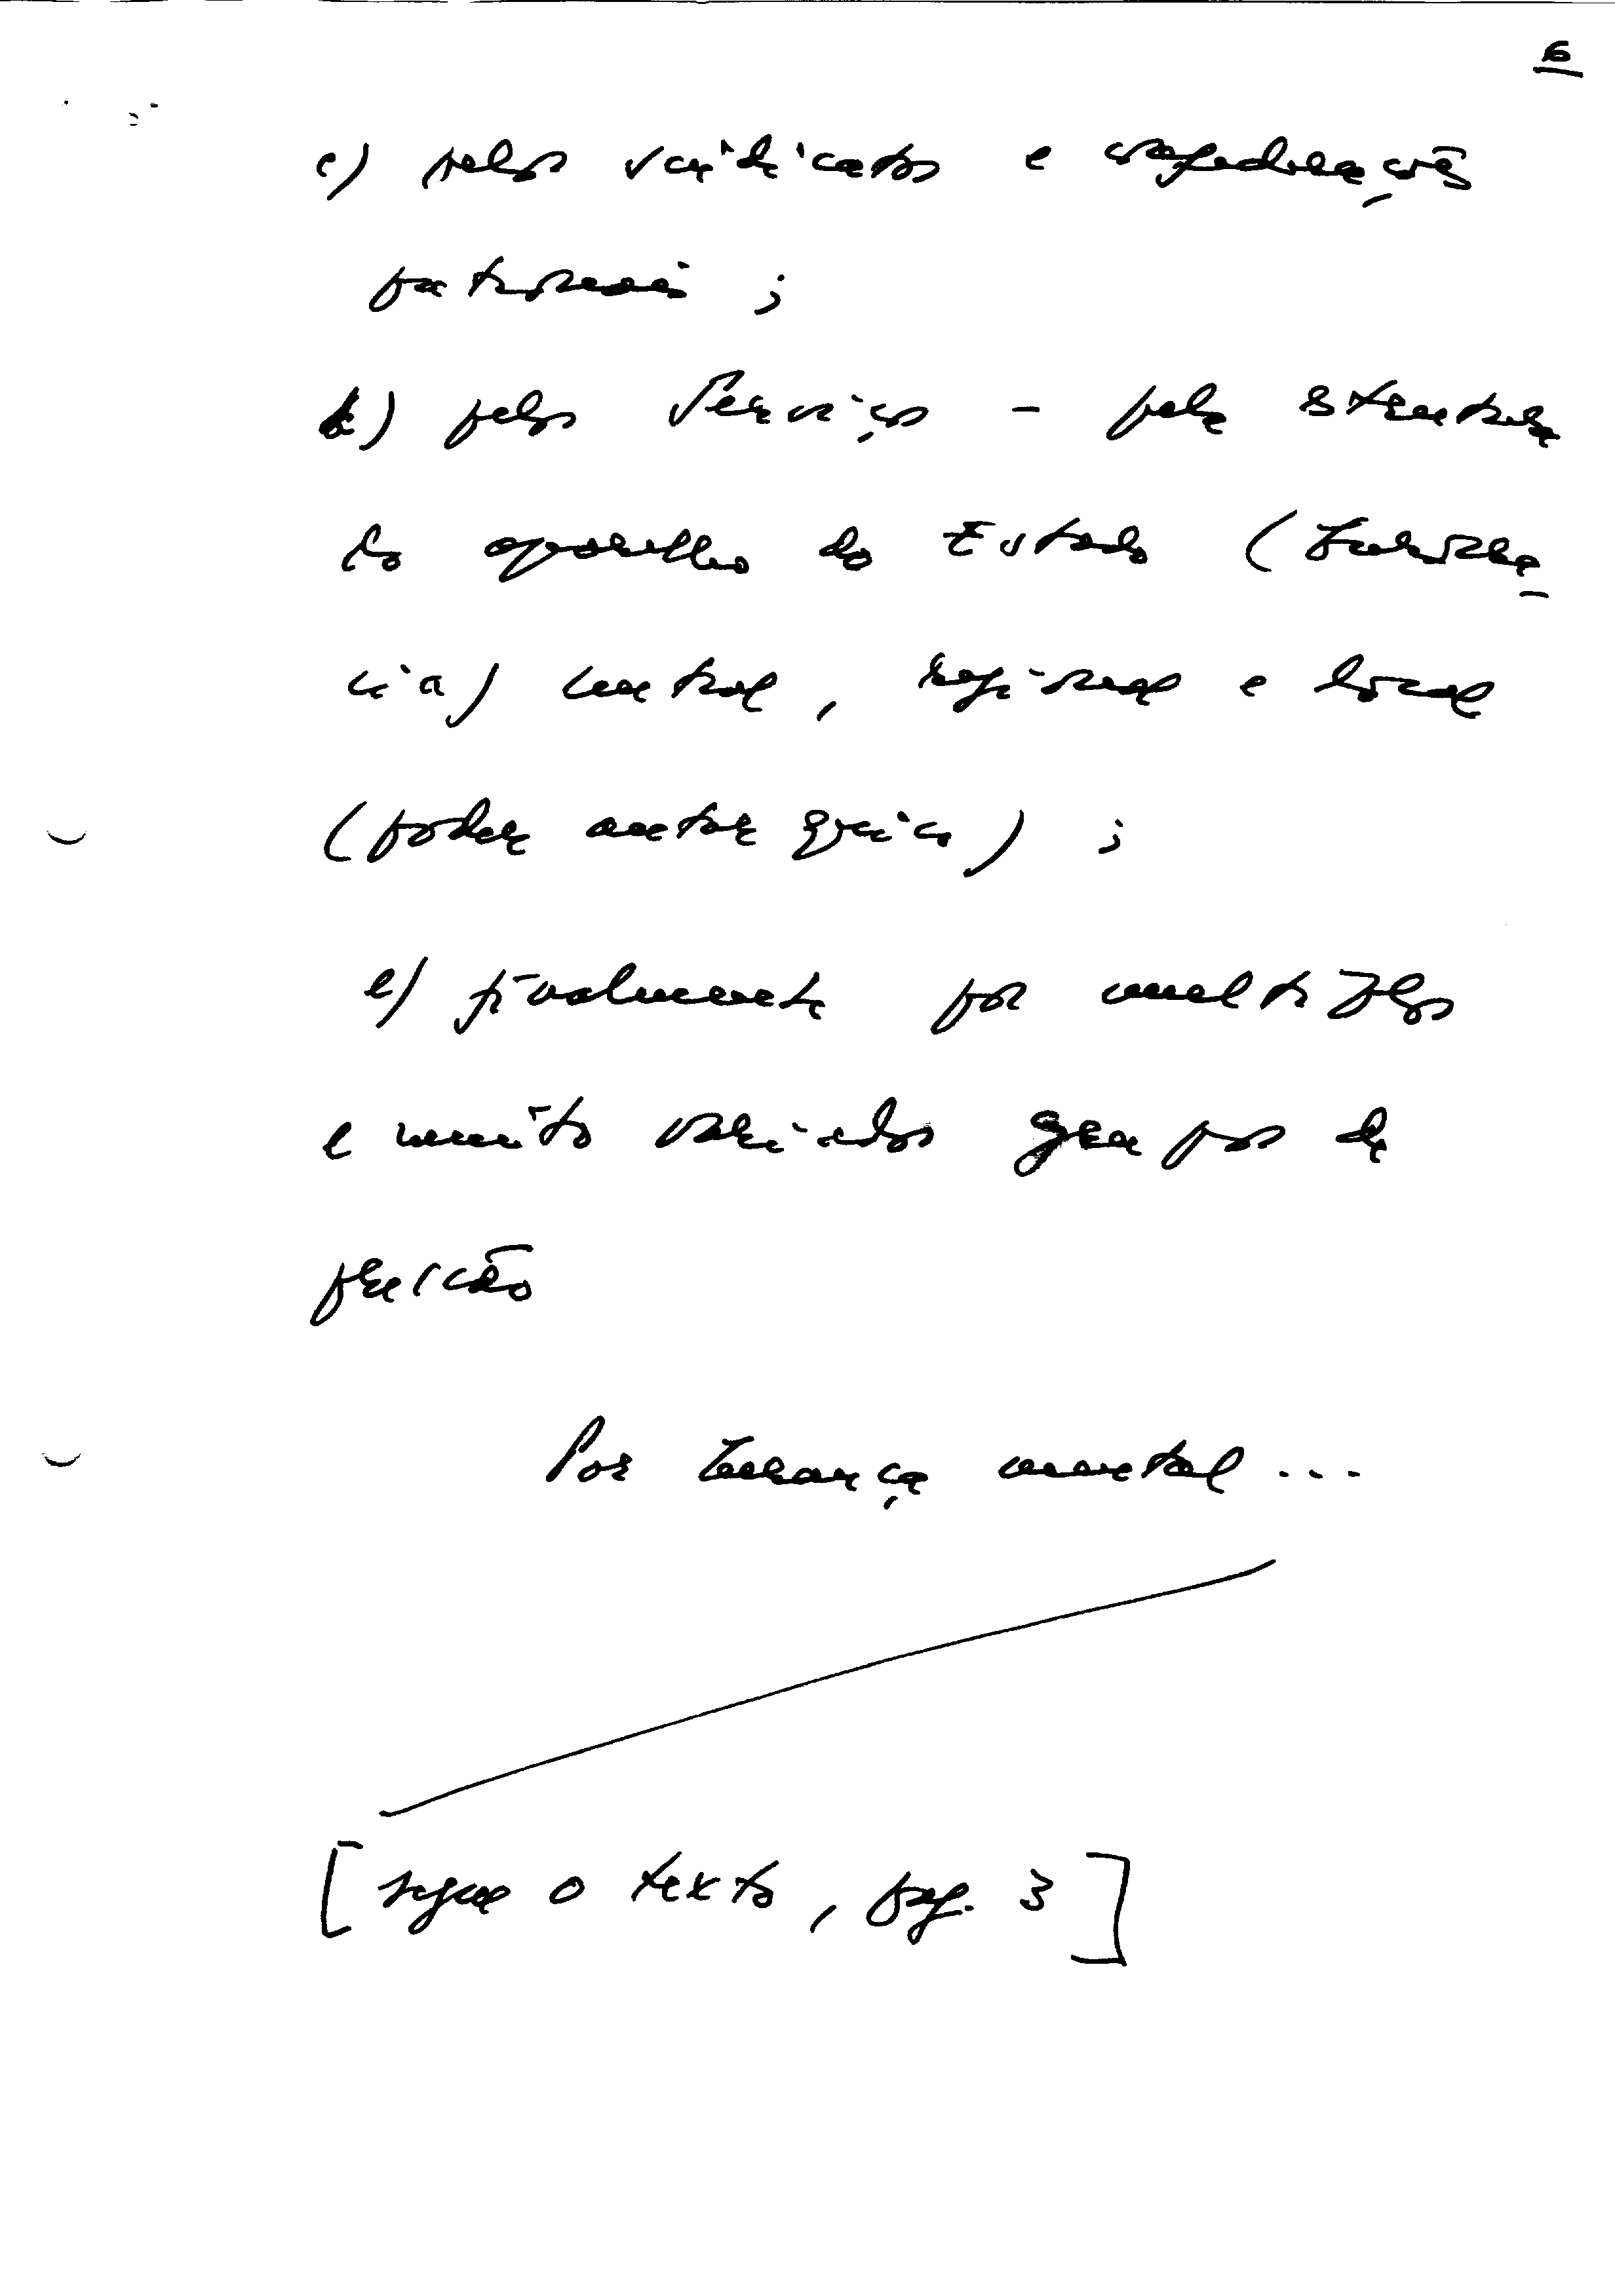 6
c) pelos sindicatos e confederações
patronais ;
d) pelos Serviços - pela estrutura
do aparelho do Estado (
cia) central, regional e local
(poder autárquico) ;
e) finalmente por multiplos
e muito variados grupos de
pressão
Por herança mental ...
[segue o texto, pag. 3]